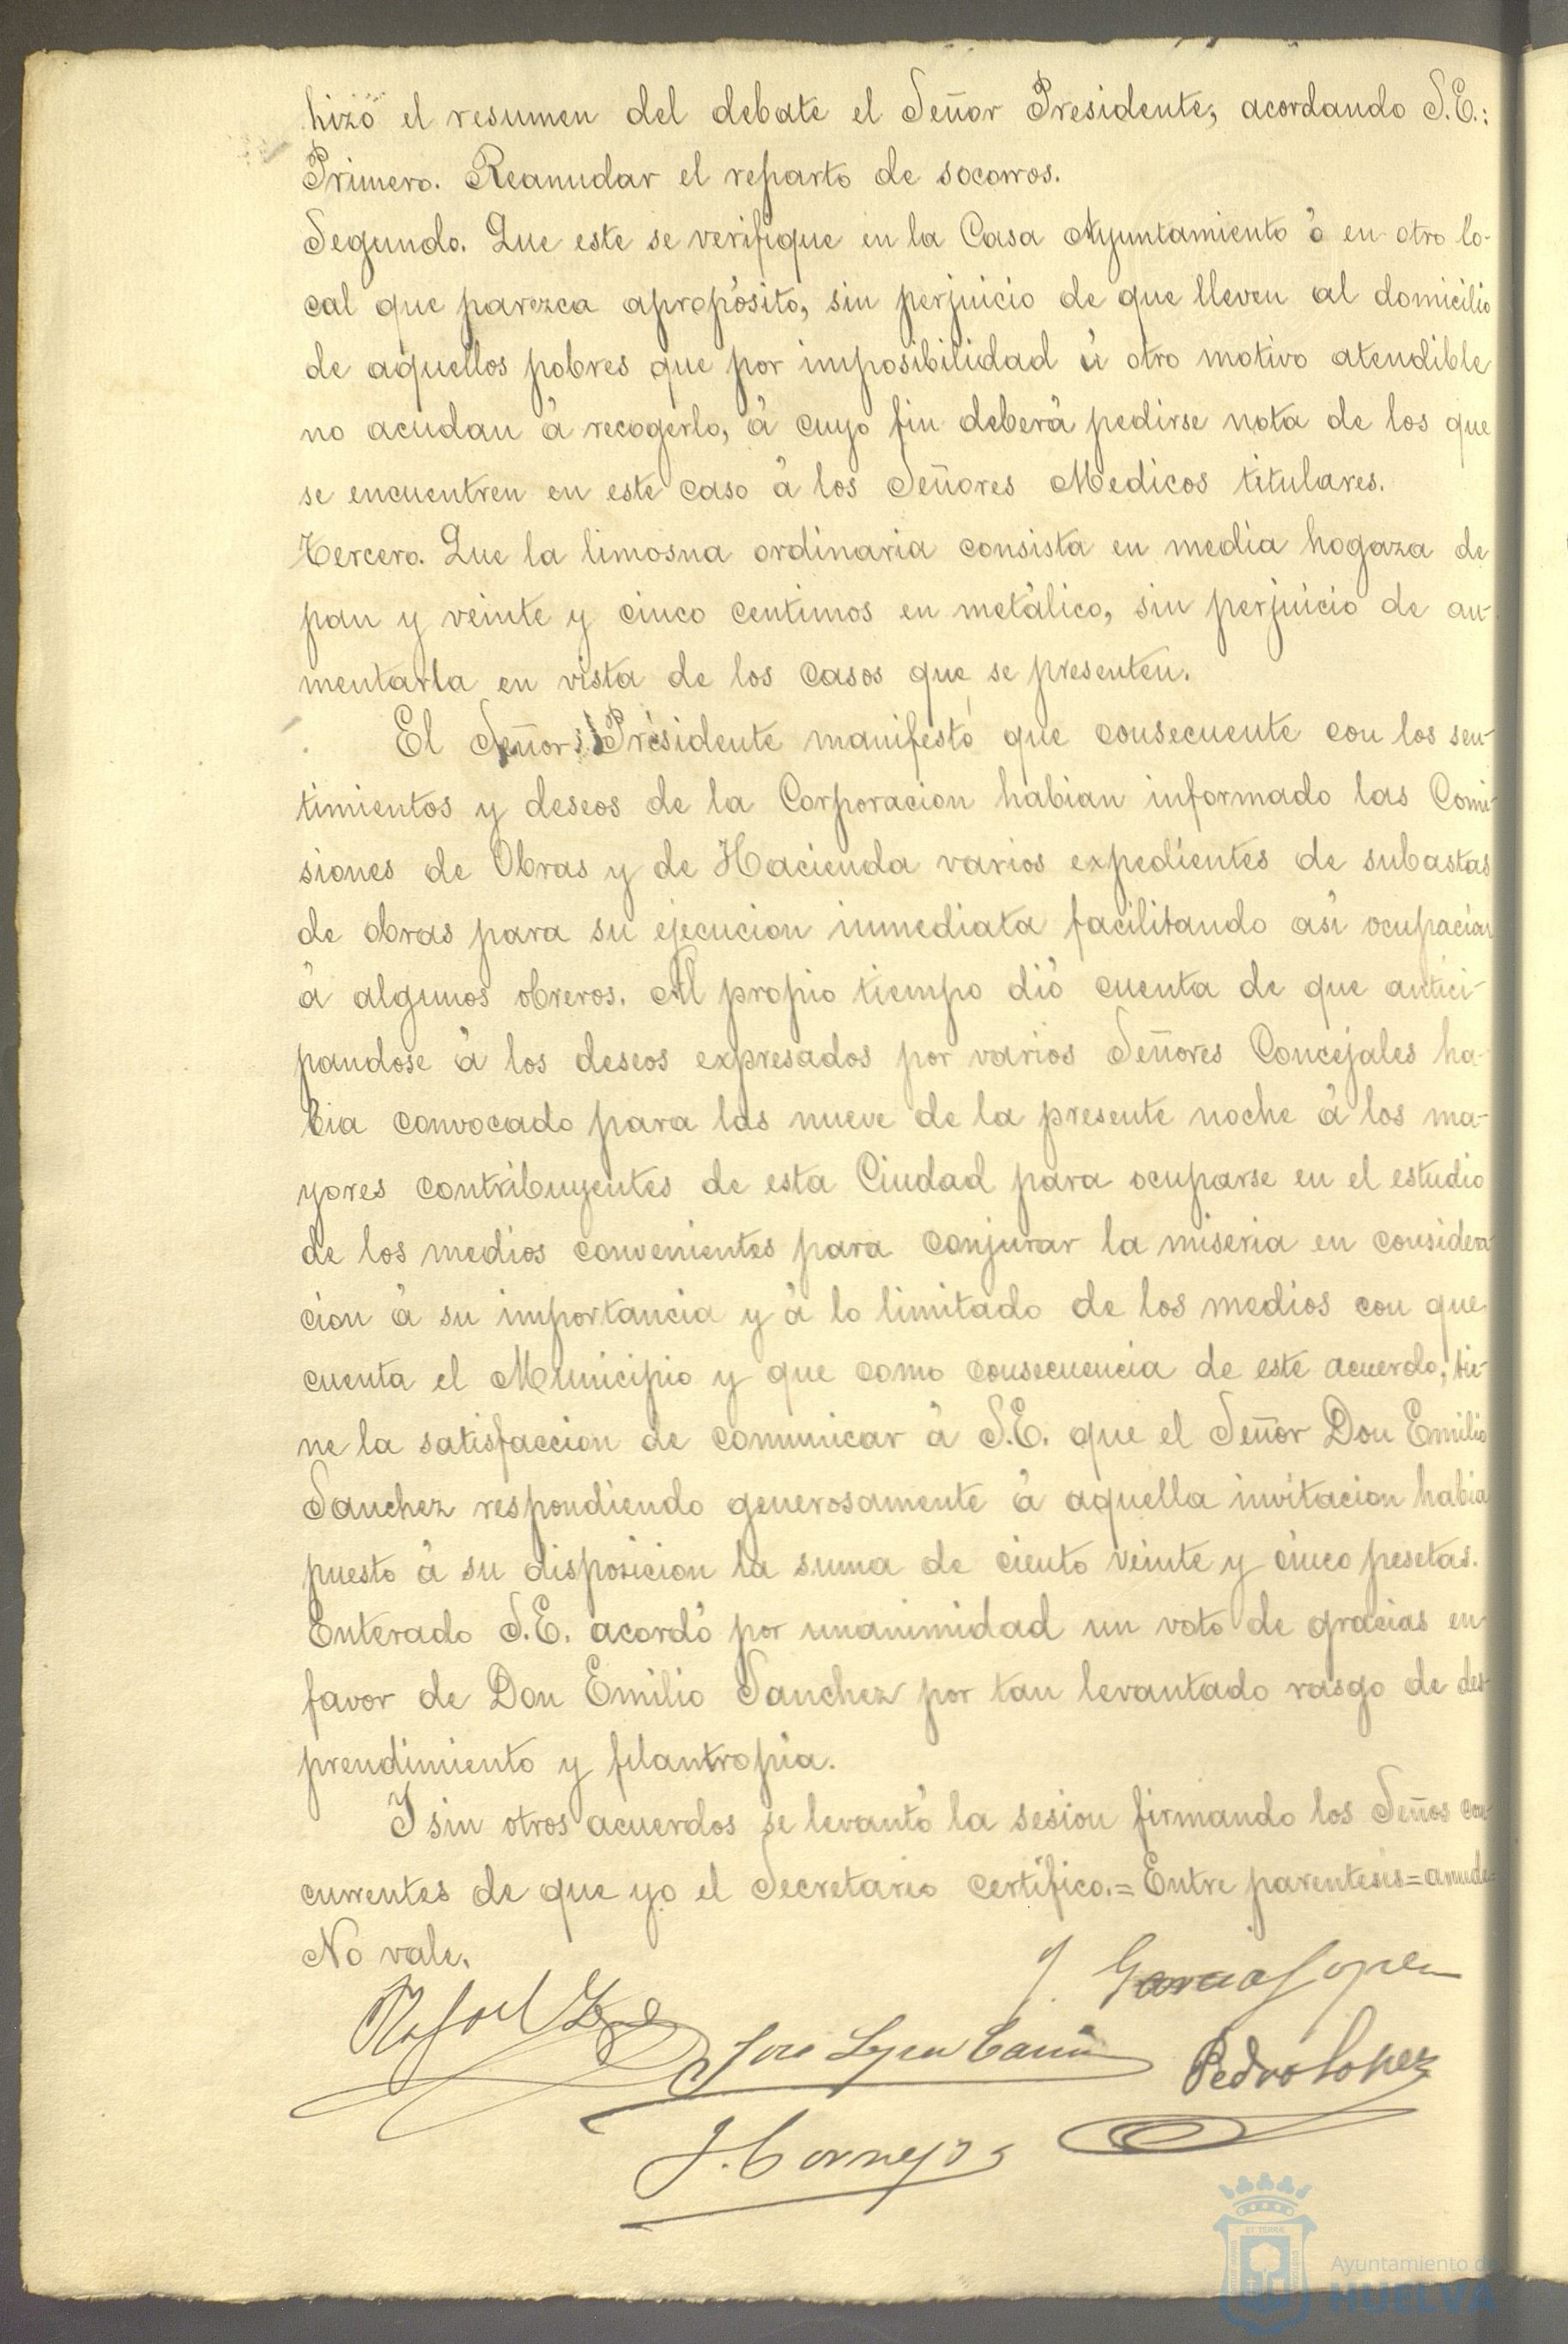 hizo el resumen del debate el Señor Presidente, acordando S.E.:
Primero. Reanudar el reparto de socorros.
Segundo. Que este se verifique en la Casa Ayuntamiento ò en otro lo-
cal que parezca apropósito, sin perjuicio de que lleven al domicilio
de aquellos pobres que por imposibilidad ù otro motivo atendible
no acudan à recogerlo, à cuyo fin deberà pedirse nota de los que
se encuentren en este caso à los Señores Medicos titulares.
Tercero. Que la limosna ordinaria consista en media hogaza de
pan y veinte y cinco centimos en metàlico, sin perjuicio de au-
mentarla en vista de los casos que se presenten.
El Señor Presidente manifestó que consecuente con los sen-
timientos y deseos de la Corporacion habian informado las Comi-
siones de Obras y de Hacienda varios expedientes de subastas
de obras para su ejecucion inmediata facilitando asi ocupacion
à algunos obreros. Al propio tiempo diò cuenta de que antici-
pandose à los deseos expresados por varios Señores Concejales ha-
bia convocado para las nueve de la presente noche à los ma-
yores contribuyentes de esta Ciudad para ocuparse en el estudio
de los medios convenientes para conjurar la miseria en considera
cion à su importancia y à lo limitado de los medios con que
cuenta el Municipio y que como consecuencia de este acuerdo, tie-
ne la satisfaccion de comunicar à S.E. que el Señor Don Emilio
Sanchez respondiendo generosamente à aquella invitacion habia
puesto à su disposicion la suma de ciento veinte y cinco pesetas.
Enterado S.E. acordò por unanimidad un voto de gracias en
favor de Don Emilio Sanchez por tan levantado rasgo de des-
prendimiento y filantropia.
Y sin otros acuerdos se levantò la sesion firmando los Seños con-
currentes de que yo el Secretario certifico.=Entre parentesis=anude=
No vale.
J. Garcia Lopez
Rafael
Jose
Pedro Lopez
J. Cornejo
Ayuntamiento de
HUELVA